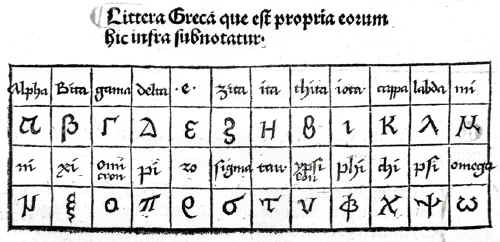 Littera Greca que est propria eorum
hic infra subnotatur.
Alpha Bita gama delta .e. zita ita thita iota cappa labda mi
α β Γ Δ ε ξ H θ ι κ λ μ
ni xi omicron pi ro sigma tau ypsilon phi chi psi omega
ν ξ ο π ρ σ τ υ φ χ ψ ω